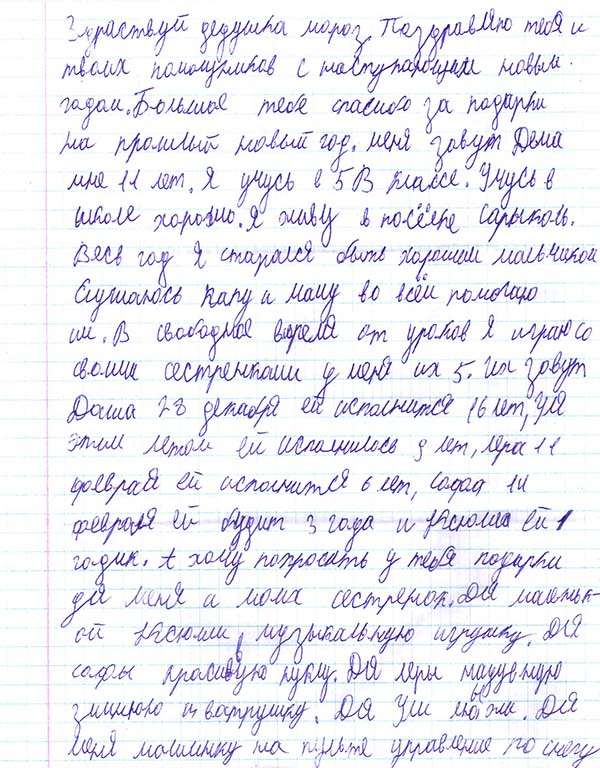 Здраствуй дедушка мороз. Поздравляю тебя и
твоих помощников с наступающим новым
годом. Большое тебе спасибо за подарки
на прошлый новый год. меня зовут Дема
мне 11 лет. Я учусь в 5В классе. Учусь в
школе хорошо. Я живу в посёлке сарыколь.
Весь год я старался быть хорошим мальчиком
Слушаюсь папу и маму во всём помогаю
им. В свободное время от уроков я играю со
своими сестренками у меня их 5. их зовут
Даша 28 декабря ей исполнится 16 лет, Уля
этим летом ей исполнилось 9 лет, лера 11
февраля ей исполнится 6 лет, софа 14
февраля ей будит 3 года и Ксюша ей 1
годик. Я хочу попросить у тебя подарки
для меня и моих сестренок. Для маленьк-
ой Ксюши, музыкальную игрушку. Для
софы красивую куклу. Для леры надувную
зимнюю ватрушку. Для Ули Для
меня машинку на пульте управление по снегу